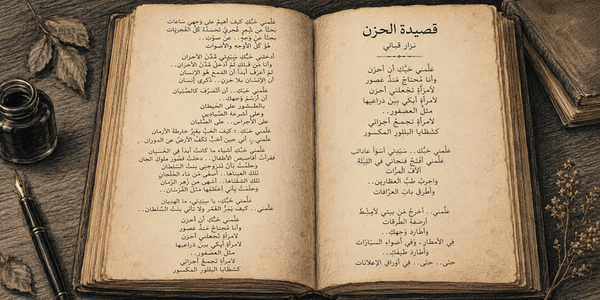 قصيدة الحزن
نزار قباني
علّمني حبّك أن أحزن
وأنا محتاجٌ منذ عصور
لامرأةٍ تجعلني أحزن
لامرأةٍ أبكي بين ذراعيها
مثل العصفور..
لامرأةٍ تجمعُ أجزائي
كشظايا البللور المكسور
علّمني حبّك.. سيّدتي أسوأ عاداتٍ
علّمني أفتحُ فنجاني في الليلة
آلاف المرّات
وأجربُ طبّ العطّارين..
وأطرقُ بابَ العرّافات
علّمني.. أخرجُ من بيتي لأمشّط
أرصفة الطرقات
وأطاردَ وجهكِ..
في الأمطار، وفي أضواء السيّارات
وأطاردَ طيفك..
حتى.. حتى.. في أوراق الإعلانات
علّمني حبّكِ كيف أهيمُ على وجهي ساعات
بحثاً عن شعرٍ غجريٍّ تحسدهُ كلُّ الغجريّات
بحثاً عن وجهٍ.. عن صوتٍ..
هوَ كلُّ الأوجهِ والأصوات
أدخلني حبّكِ مدنَ الأحزان
وأنا من قبلكِ لم أدخل مدنَ الأحزان..
لم أعرف أبداً أن الدمع هو الإنسان
أن الإنسان بلا حزنٍ.. ذكرى إنسان
علّمني حبك.. أن أتصرّف كالصبيان
أن أرسمَ وجهكِ..
بالطبشور على الحيطان
وعلى أشرعة الصيّادين
على الأجراس.. على الصلبان
علّمني حبك.. كيف الحبّ يغيّرُ خارطة الأزمان
علّمني.. أني حين أحبّ تكفُّ الأرضُ عن الدوران..
علّمني حبك أشياء ما كانت أبداً في الحسبان
فقرأت أقاصيص الأطفال.. دخلتُ قصورَ ملوك الجان
وحلمتُ بأن تتزوجني بنتُ السلطان
تلك العيناها.. أصفى من ماء الخلجان
تلك الشفتاها.. أشهى من زهر الرمّان
وحلمتُ بأني أخطفُها مثلَ الفرسان..
علّمني حبكِ، يا سيدتي، ما الهذيان
علّمني.. كيف يمرُّ العُمر ولا تأتي بنتُ السلطان..
علّمني حبكِ أن أحزن
وأنا محتاجٌ منذ عصور
لامرأةٍ تجعلني أحزن
لامرأةٍ أبكي بين ذراعيها
مثل العصفور..
لامرأةٍ تجمعُ أجزائي
كشظايا البللور المكسور